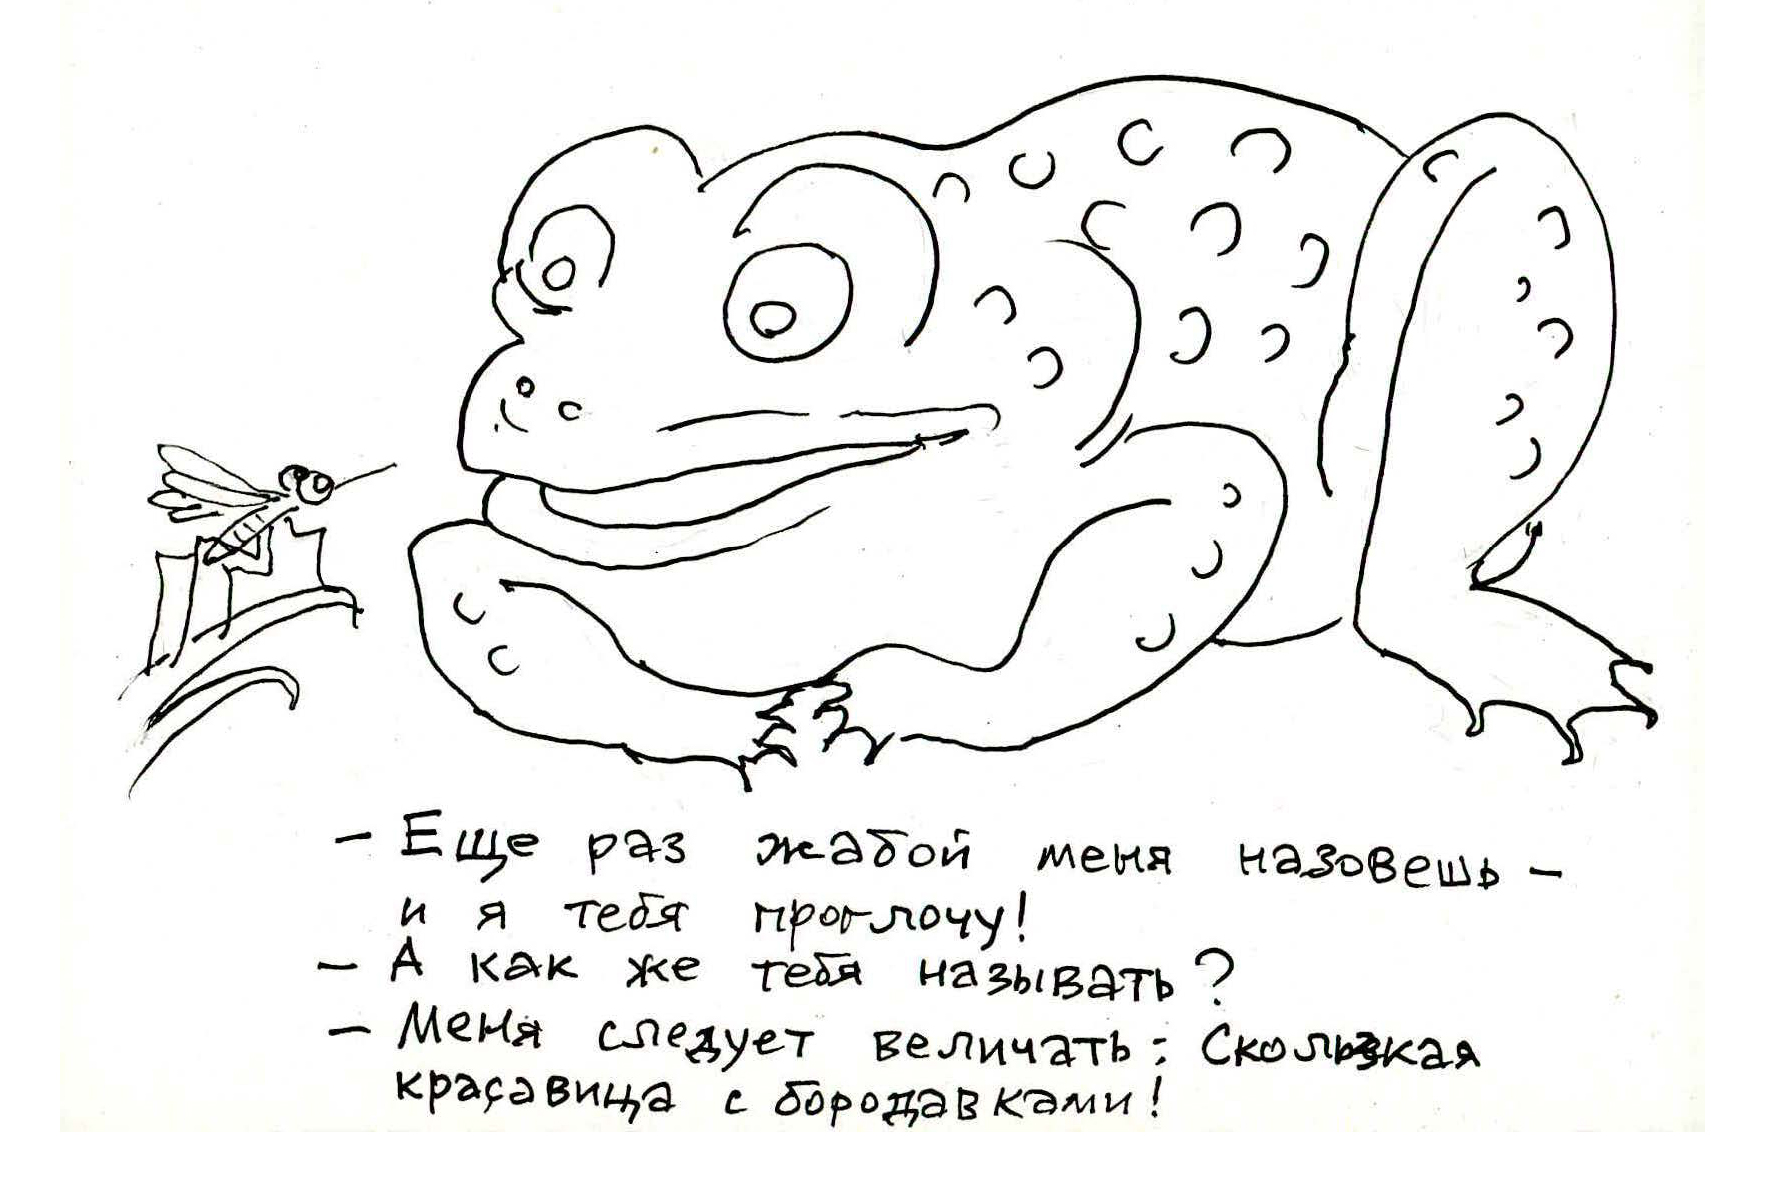 – Еще раз жабой меня назовешь –
и я тебя проглочу!
– А как же тебя называть?
– Меня следует величать: Скользкая
красавица с бородавками!